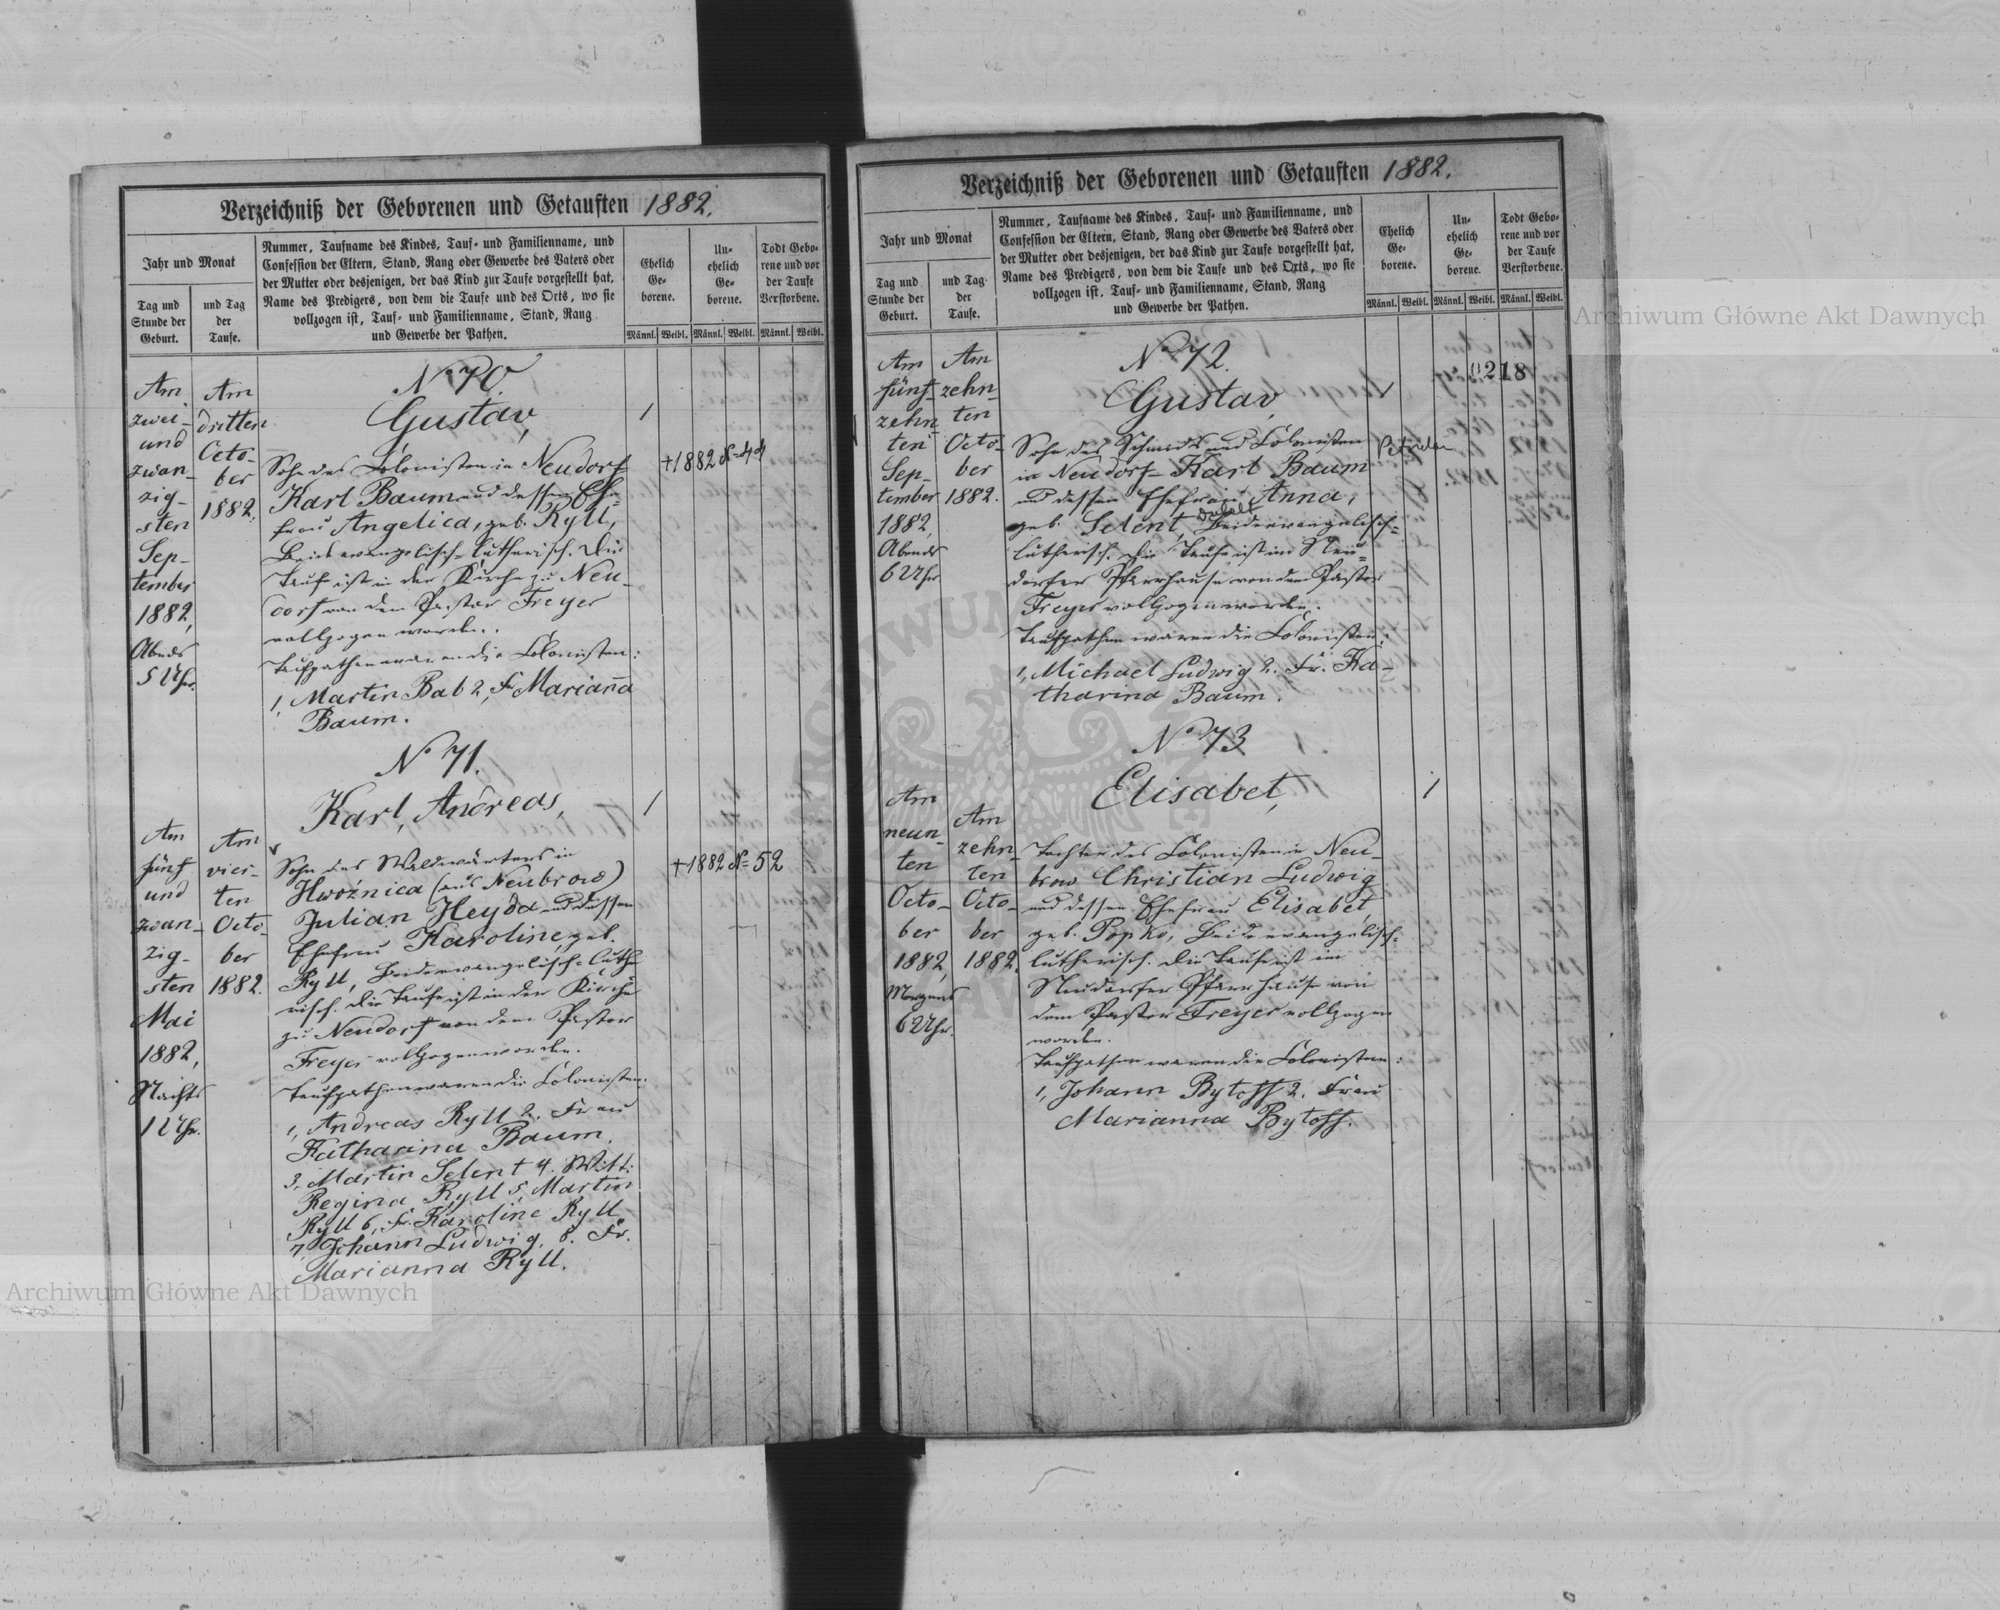 Verzeichniß der Geborenen und Getauften 1882.
Jahr und Monat
Tag und
Stunde der
Geburt.
und Tag
der
Taufe.
Nummer, Taufname des Kindes, Tauf- und Familienname, und
Confession der Eltern, Stand, Rang oder Gewerbe des Vaters oder
der Mutter oder desjenigen, der das Kind zur Taufe vorgestellt hat,
Name des Predigers, von dem die Taufe und des Orts, wo sie
vollzogen ist, Tauf- und Familienname, Stand, Rang
und Gewerbe der Pathen.
Ehelich
Ge-
borene.
Un-
ehelich
Ge-
borene.
Todt Gebo-
rene und vor
der Taufe
Verstorbene.
Männl. Weibl. Männl. Weibl. Männl. Weibl.
Am
zwei-
und
zwan-
zig-
sten
Sep-
tember
1882,
Abends
5 Uhr.
Am
dritten
Octo-
ber
1882.
No 70
Gustav,
Sohn des Colonisten in Neudorf
Karl Baum und dessen Ehe-
frau Angelica, geb. Ryll,
Beide evangelisch-lutherisch. Die
Taufe ist in der Kirche zu Neu-
dorf von dem Pastor Freyer
vollzogen worden.
Taufpathen waren die Colonisten:
1, Martin Bab 2, Fr Marianna
Baum.
1
+1882 N=44
Am
fünf
und
zwan-
zig-
sten
Mai
1882,
Nachts
1 Uhr.
Am
vier-
ten
Octo-
ber
1882.
No 71.
Karl, Andreas,
Sohn des Waldwärters in
Hwoźnica (aus Neubrow)
Julian Heyda und dessen
Ehefrau Karoline, geb.
Ryll, Beide evangelisch-luthe
risch. Die Taufe ist in der Kirche
zu Neudorf von dem Pastor
Freyer vollzogen worden.
Taufpathen waren die Colonisten:
1, Andreas Ryll 2. Frau
Katharina Baum.
3, Martin Selent 4. Witt:
Regina Ryll 5, Martin
Ryll 6, Fr. Karoline Ryll
7, Johann Ludwig, 8. Fr.
Marianna Ryll.
1
+1882 N=52
Verzeichniß der Geborenen und Getauften 1882.
Jahr und Monat
Tag und
Stunde der
Geburt.
und Tag
der
Taufe.
Nummer, Taufname des Kindes, Tauf- und Familienname, und
Confession der Eltern, Stand, Rang oder Gewerbe des Vaters oder
der Mutter oder desjenigen, der das Kind zur Taufe vorgestellt hat,
Name des Predigers, von dem die Taufe und des Orts, wo sie
vollzogen ist, Tauf- und Familienname, Stand, Rang
und Gewerbe der Pathen.
Ehelich
Ge-
borene.
Un-
ehelich
Ge-
borene.
Todt Gebo-
rene und vor
der Taufe
Verstorbene.
Männl. Weibl. Männl. Weibl. Männl. Weibl.
0218
Am
fünf-
zehn
ten
Sep-
tember
1882,
Abends
6 Uhr.
Am
zehn-
ten
Octo-
ber
1882.
No 72.
Gustav,
Sohn des Schmidts und Colonisten
in Neudorf Karl Baum
und dessen Ehefrau Anna,
geb. Selent, Beide evangelisch-
lutherisch. Die Taufe ist im Neu-
dorfer Pfarrhause von dem Pastor
Freyer vollzogen worden.
Taufpathen waren die Colonisten:
1, Michael Ludwig 2. Fr. Ka-
tharina Baum.
Am
neun-
ten
Octo-
ber
1882,
Morgens
6 Uhr.
Am
zehn-
ten
Octo-
ber
1882.
No 73
Elisabet,
Tochter des Colonisten in Neu-
brow Christian Ludwig
und dessen Ehefrau Elisabet,
geb. Popko, Beide evangelisch-
lutherisch. Die Taufe ist im
Neudorfer Pfarrhause von
dem Pastor Freyer vollzogen
worden.
Taufpathen waren die Colonisten:
1, Johann Bytoff 2. Frau
Marianna Bytoff.
1
Archiwum Główne Akt Dawnych
Archiwum Główne Akt Dawnych